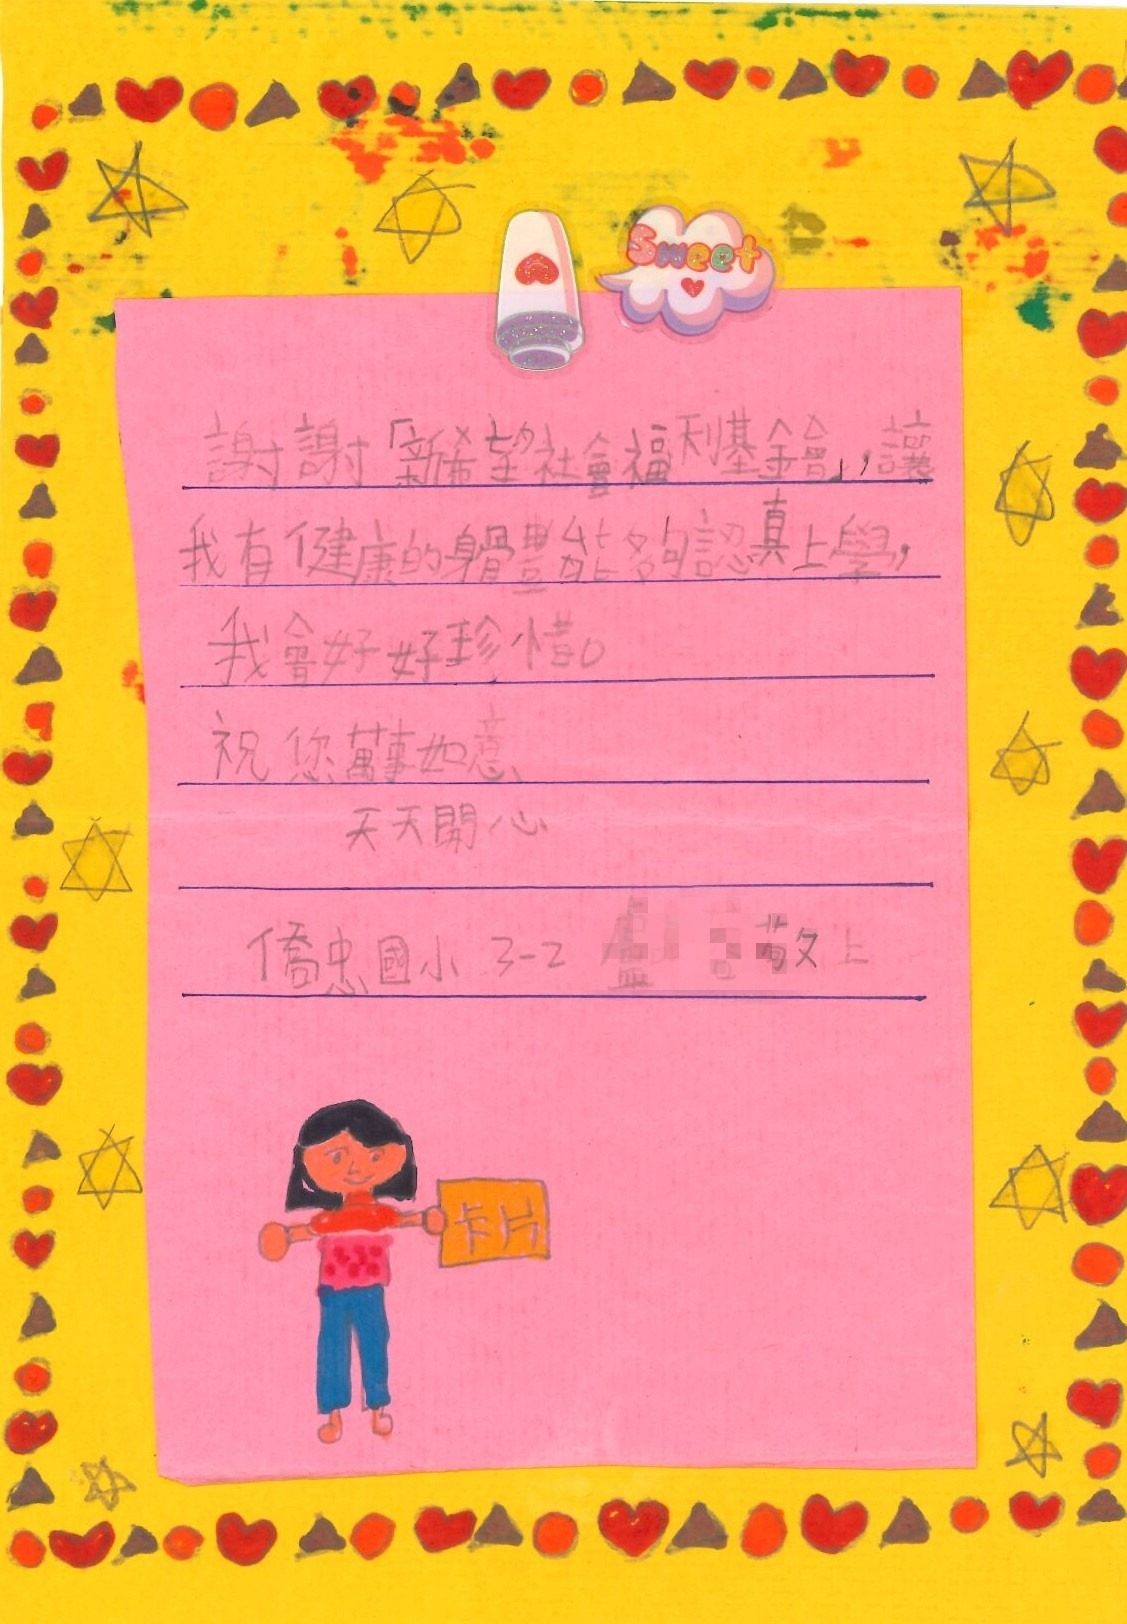 Sweet
謝謝「新希望社會福利基金會」,讓
我有健康的身體能夠認真上學,
我會好好珍惜。
祝您萬事如意
天天開心
僑忠國小 3-2 敬上
卡片